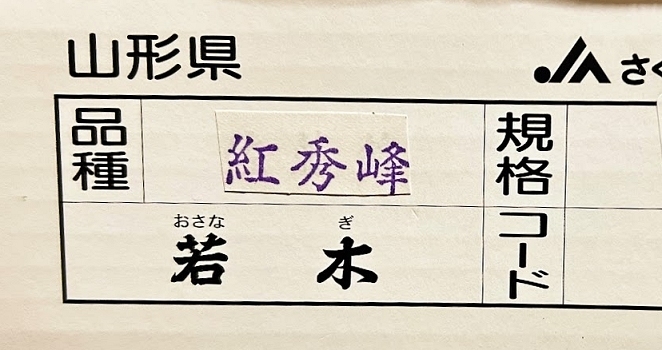 山形県 JAさく
品種 紅秀峰 規格コード
おさな ぎ
若木